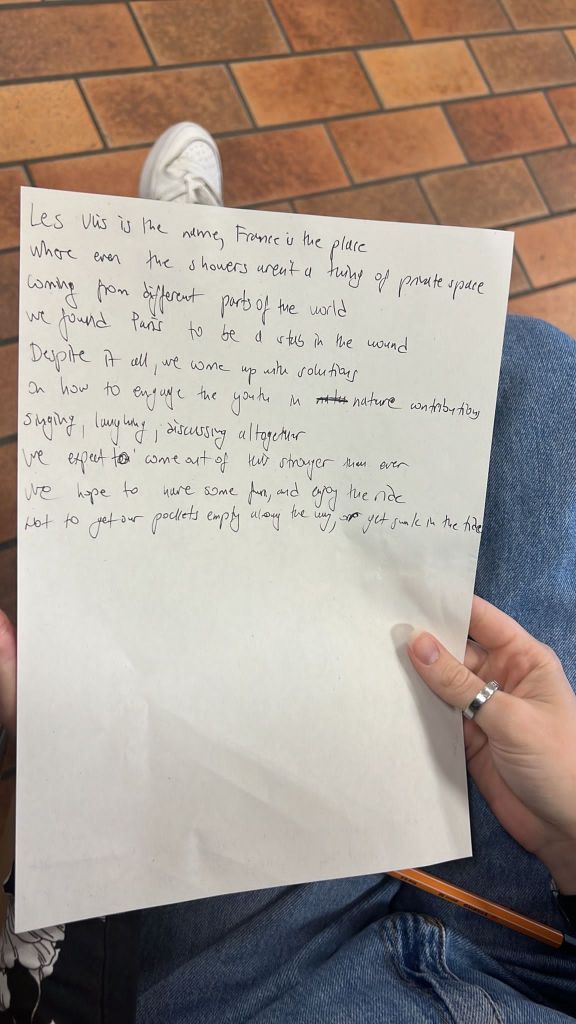 Les Ulis is the name, France is the place
where even the showers aren't a thing of private space
Coming from different parts of the world
we found Paris to be a stab in the wound
Despite it all, we come up with solutions
on how to engage the youth in nature contributions
singing, laughing, discussing altogether
We expect to come out of this stronger than ever
We hope to have some fun, and enjoy the ride
Not to get our pockets empty along the way, or get sunk in the tide